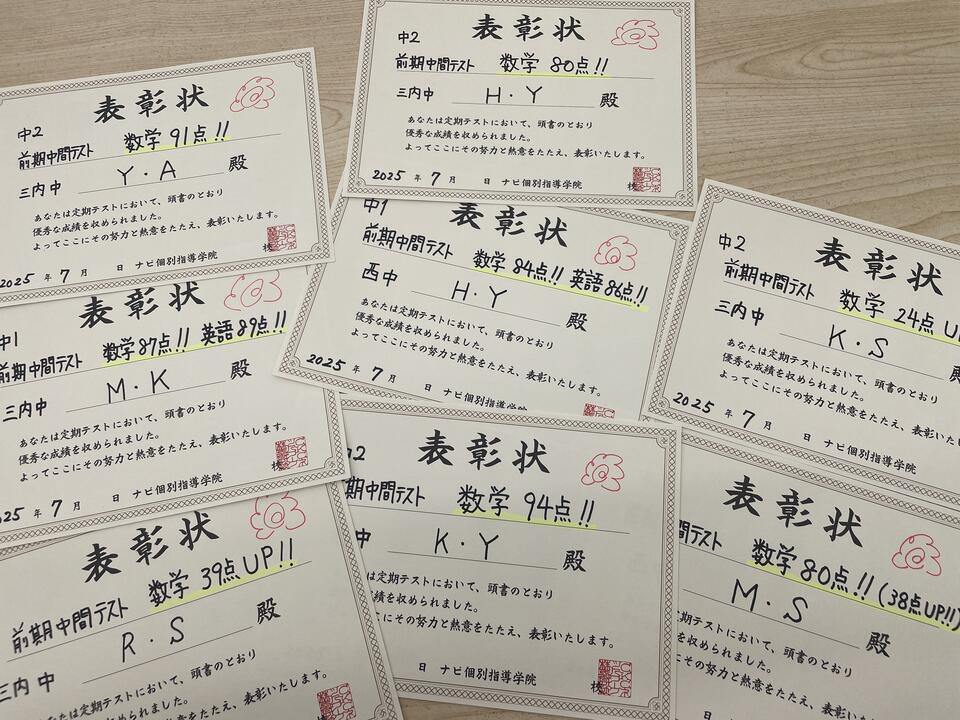 表彰状
中2
前期中間テスト 数学 91点!!
三内中 Y・A 殿
あなたは定期テストにおいて、頭書のとおり
優秀な成績を収められました。
よってここにその努力と熱意をたたえ、表彰いたします。
2025 年 7 月 日 ナビ個別指導学院
表彰状
中2
前期中間テスト 数学 80点!!
三内中 H・Y 殿
あなたは定期テストにおいて、頭書のとおり
優秀な成績を収められました。
よってここにその努力と熱意をたたえ、表彰いたします。
2025 年 7 月 日 ナビ個別指導学院 株
表彰状
中1
前期中間テスト 数学 84点!! 英語 86点!!
西中 H・Y 殿
あなたは定期テストにおいて、頭書のとおり
優秀な成績を収められました。
よってここにその努力と熱意をたたえ、表彰いたします。
2025 年 7 月 日 ナビ個別指導学院
表彰状
中2
前期中間テスト 数学 24点 U
三内中 K・S 殿
あなたは定期テストにおいて、頭書のとおり
優秀な成績を収められました。
よってここにその努力と熱意をたたえ、表彰いたし
2025 年 7 月 日 ナビ個別指導学院
表彰状
中1
前期中間テスト 数学 87点!! 英語 89点!!
三内中 M・K 殿
あなたは定期テストにおいて、頭書のとおり
優秀な成績を収められました。
よってここにその努力と熱意をたたえ、表彰いたします。
025 年 7 月 日 ナビ個別指導学院 株
表彰状
前期中間テスト 数学 39点UP!!
三内中 R・S 殿
あなたは定期テストにおいて、頭書のとおり
収められました。
努力と熱意をたたえ、表彰いたします。
表彰状
中2
期中間テスト 数学 94点!!
中 K・Y 殿
は定期テストにおいて、頭書のとおり
成績を収められました。
てここにその努力と熱意をたたえ、表彰いたします。
日 ナビ個別指導学院 株
表彰状
テスト 数学 80点!! (38点UP!!)
M・S 殿
定期テストにおいて、頭書のとおり
を収められました。
にその努力と熱意をたたえ、表彰いたします。
日 ナビ個別指導学院